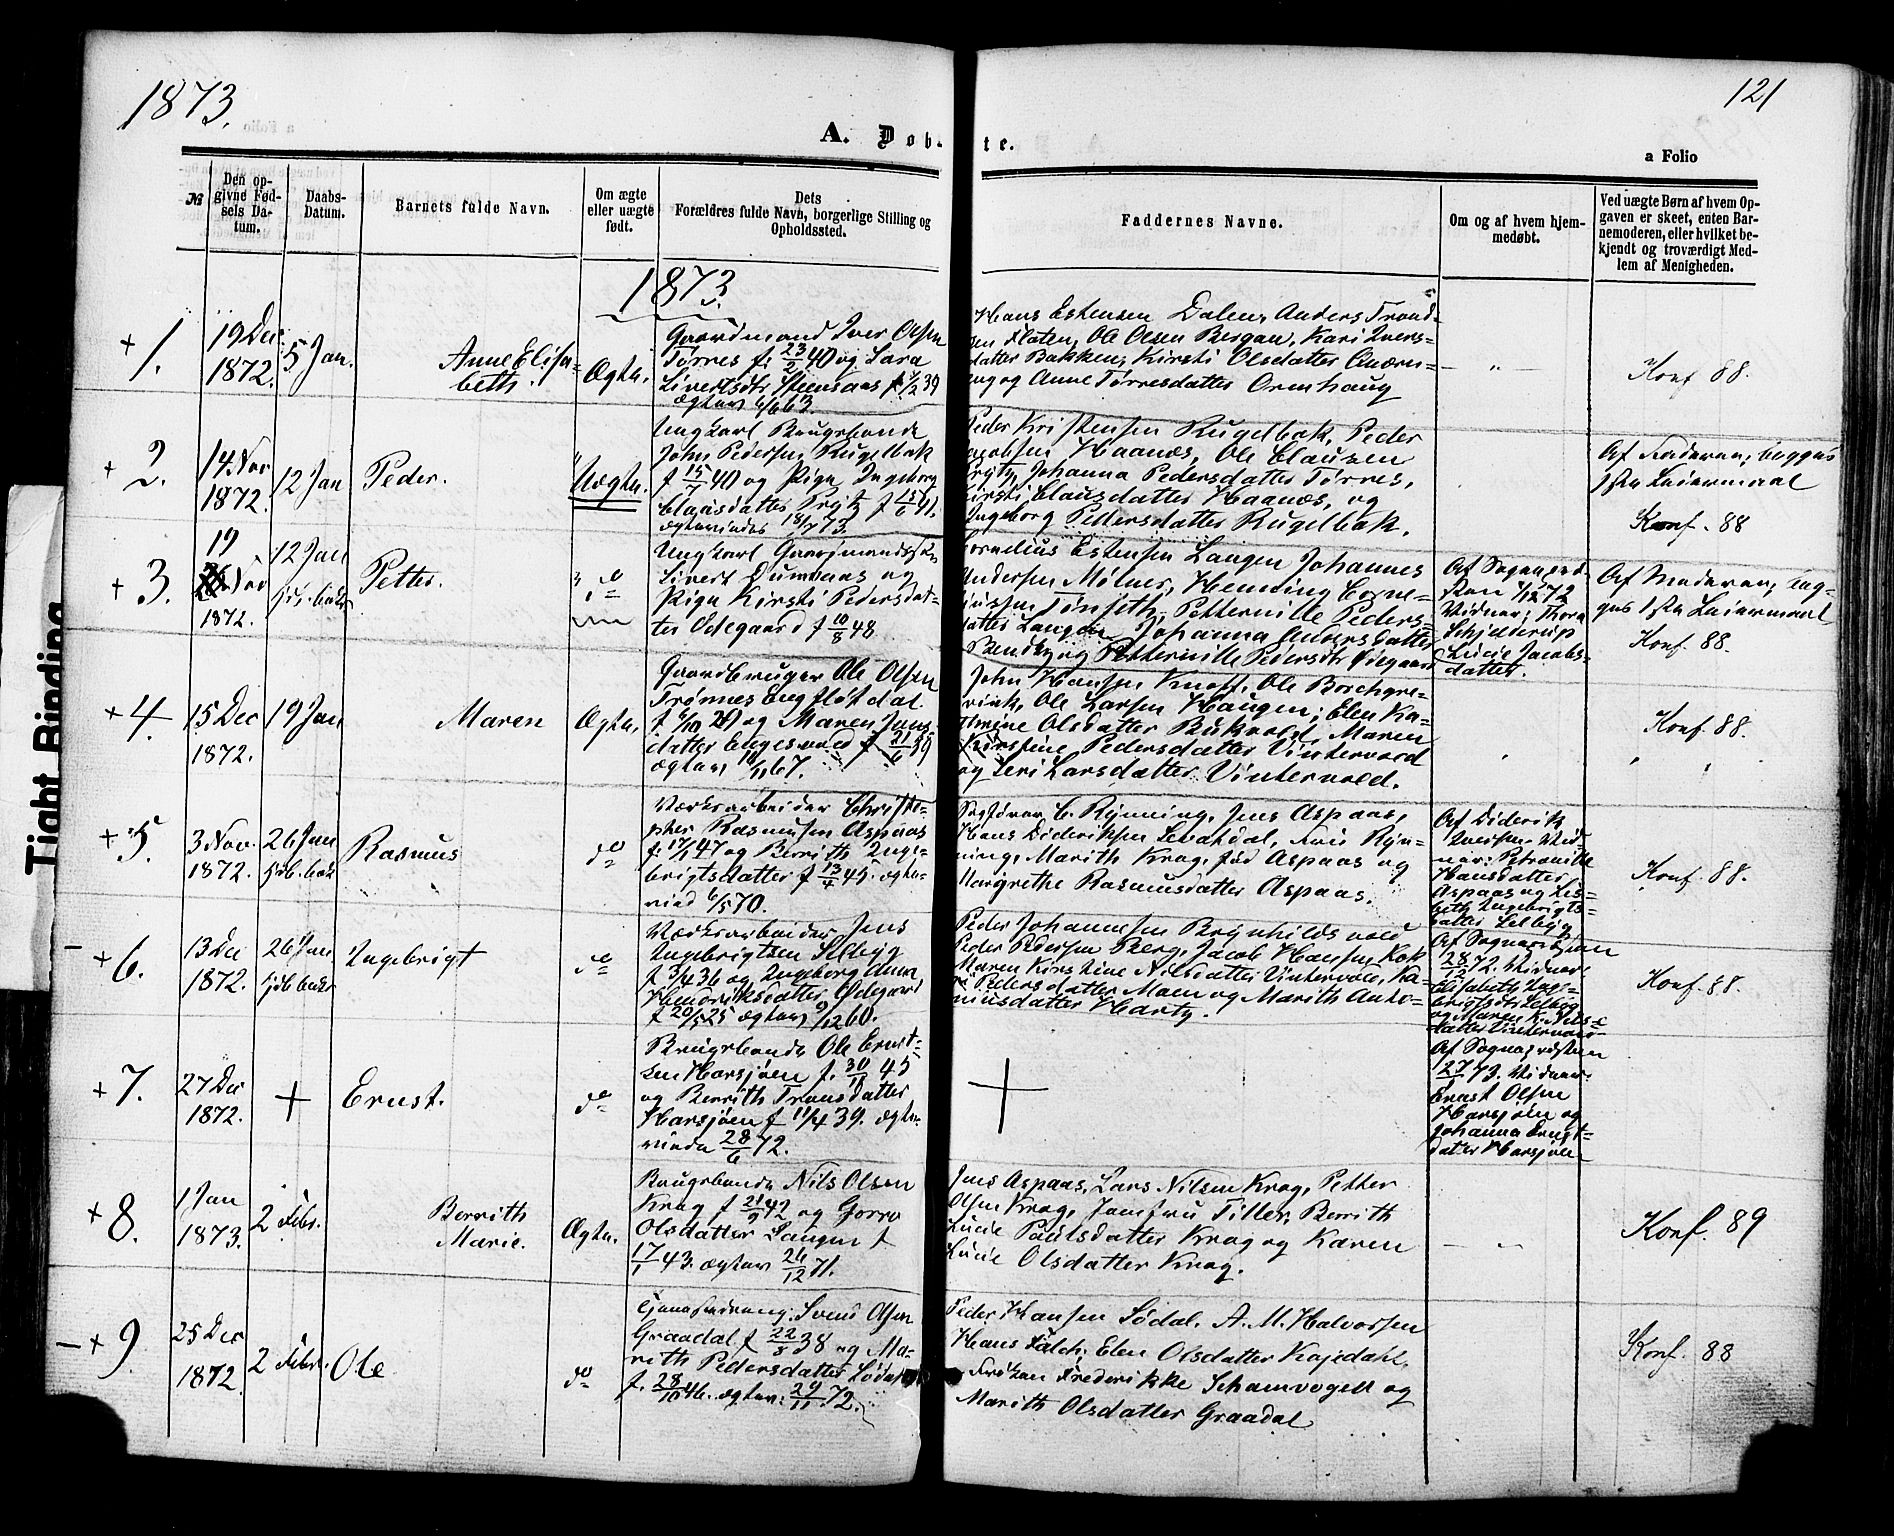 1873.
121
A. Døb-
te.
a Folio
№
Den op-
givne Fød-
sels Da-
tum.
Daabs-
Datum.
Barnets fulde Navn.
Om ægte
eller uægte
født.
Dets
Forældres fulde Navn, borgerlige Stilling og
Opholdssted.
Faddernes Navne.
Om og af hvem hjem-
medøbt.
Ved uægte Børn af hvem Op-
gaven er skeet, enten Bar-
nemoderen, eller hvilket be-
kjendt og troværdigt Med-
lem af Menigheden.
1873.
+ 1.
19 Dec.
1872.
5 Jan.
Anne Elisa-
beth.
Ægte.
Gaardmand Iver Olsen
Tørres f. 23/2 40 og Sara
Sivertsdtr Steensaas
ægtev 6/6 63.
Hans Estensen Dalen, Anders Trond-
sen Floten, Ole Olsen Bergan, Kari Ivers-
datter Bakken, Kirsti Olsdatter
og Anne Tørresdatter Ormhaug
— " —
Konf 88.
+ 2.
14 Nov
1872.
12 Jan
Peder.
Uægte.
Ungkarl Brugsbonde
John Pedersen Rugelbak
f 15/7 40 og Pige Ingeborg
Clausdatter Prytz f 15/6 41.
18/7 73.
Peder Kristensen Rugelbak, Peder
Jacobsen Haanæs, Ole Clausen
Prytz, Johanna Pedersdatter Tørres,
Kirsti Clausdatter Haanæs, og
Ingeborg Pedersdatter Rugelbak.
Af Faderen; begges
1ste Leiermaal
Konf. 88
+ 3.
19
Nov
1872.
12 Jan
Petter.
do
Ungkarl Gaardmandssøn
Sivert Dumaas og
Pige Kirsti Pedersdat-
ter Ødegaard f 10/8 48.
Cornelius Estensen Langen, Johannes
Andersen Mølner, Hemming Corne-
liussen Tønseth, Petternille Peders-
datter Langen, Johanna Andersdatter
og Petternille Pedersdtr Ødegaard
Af Sognepre-
sten 1/12 72
Vidner, Thora
Schjelderup
Lucie Jacobs-
datter.
Af Moderen; beg-
ges 1ste Leiermaal
Konf 88.
+ 4.
15 Dec
1872.
19 Jan
Maren
Ægte.
Gaardbruger Ole Olsen
Trønnes Engfløtdal
og Maren Jons-
datter Engesvold f 21/6 39
ægtev. 67.
John Hansen Knoff, Ole Borchgre-
vink, Ole Larsen Haugen; Elen Ka-
thrine Olsdatter Bukvold, Maren
Kirstine Pedersdatter Vintervold
og Siri Larsdatter Vintervold.
"
Konf. 88.
+ 5.
3 Nov.
1872.
26 Jan
Rasmus
do
Værksarbeider Christo-
pher Rasmusen Aspaas
f. 17/1 47 og Berrith Inge-
brigtsdatter f 13/4 45. ægte-
vied 6/5 70.
Sagfører C. Rynning, Jens Aspaas,
Hans Dideriksen Sevatdal, Fru Ryn-
ning, Marith Krag, fød Aspaas og
Margrethe Rasmusdatter Aspaas.
Af Diderik
Iversen. Vid-
ner: Petronille
Hansdatter
Aspaas og Lis-
beth Ingebrigts-
datter Selbyg
Konf. 88.
– + 6.
13 Dec
1872.
26 Jan
Ingebrigt
do
Værksarbeider Jens
Ingebrigtsen Selbyg
f 3/4 36 og Ingeborg Anna
Henriksdatter Ødegaard
f 20/5 25 ægtev 9/12 60.
Peder Johannesen Brynhildsvold
Peder Pedersen Berg, Jacob Hansen Kok
Maren Kirstine Nilsdatter Vintervold, Ka-
ri Pedersdatter Moen og Marith Anto-
niusdatter Harty.
Af Sognepresten
28/12 72. Vidner
Elisabeth Inge-
brigtsdtr Selbyg
og Maren K. Nils-
datter Vintervold
Konf. 88.
+ 7.
27 Dec
1872.
+
Ernst.
do
Brugsbonde Ole Ernst-
sen Harsjøen f. 30/11 45
og Berrith Tronsdatter
Harsjøen f 11/4 39. ægte-
viede 28/6 72.
+
Af Sognepresten
73. Vidner
Ernst Olsen
Harsjøen og
Johanna Ernst-
datter Harsjøen
+ 8.
1 Jan
1873.
2 Febr.
Berrith
Marie.
Ægte.
Brugsbonde Nils Olsen
Krag f 21/9 42 og Gorro
Olsdatter Langen f
17/1 43. ægtev 26/12 71.
Jens Aspaas, Lars Nilsen Krag, Petter
Olsen Krag, Jomfru Tiller, Berrith
Lucie Paulsdatter Krag og Karen
Lucie Olsdatter Krag.
— " —
Konf. 89
– + 9.
25 Dec
1872.
2 Febr.
Ole
do
Tjenestedreng Svend Olsen
Graadal f 22/8 38 og Ma-
rith Pedersdatter Sødal
f. 28/10 46. ægtev. 24/11 72.
Peder Hansen Sødal, A. M. Halvorsen
Hans Falch, Elen Olsdatter Kojedahl,
Frøken Frederikke Schamvogell og
Marith Olsdatter Graadal
Konf. 88
Tight Binding